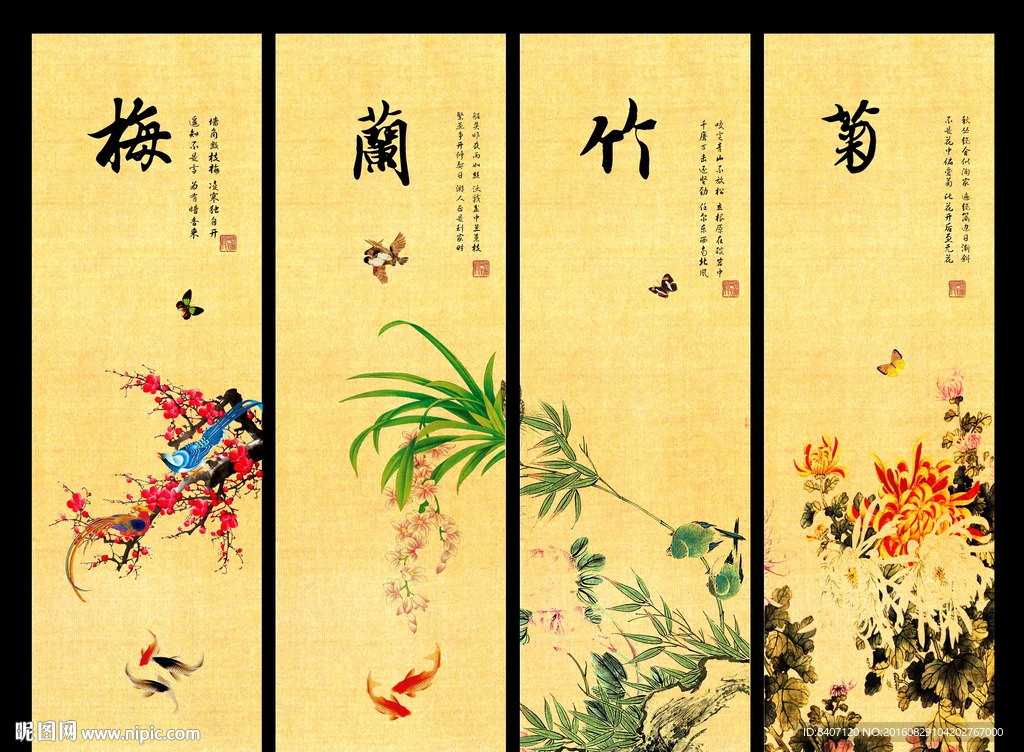 梅
墙角数枝梅 凌寒独自开
遥知不是雪 为有暗香来
蘭
昨夜雨如丝
游人正是到家时
竹
咬定青山不放松 立根原在破岩中
千磨万击还坚劲 任尔东西南北風
菊
秋丛绕舍似陶家 遍绕篱边日渐斜
不是花中偏爱菊 此花开后更无花
昵图网 www.nipic.com
ID:8407120 NO:20160829104202767000